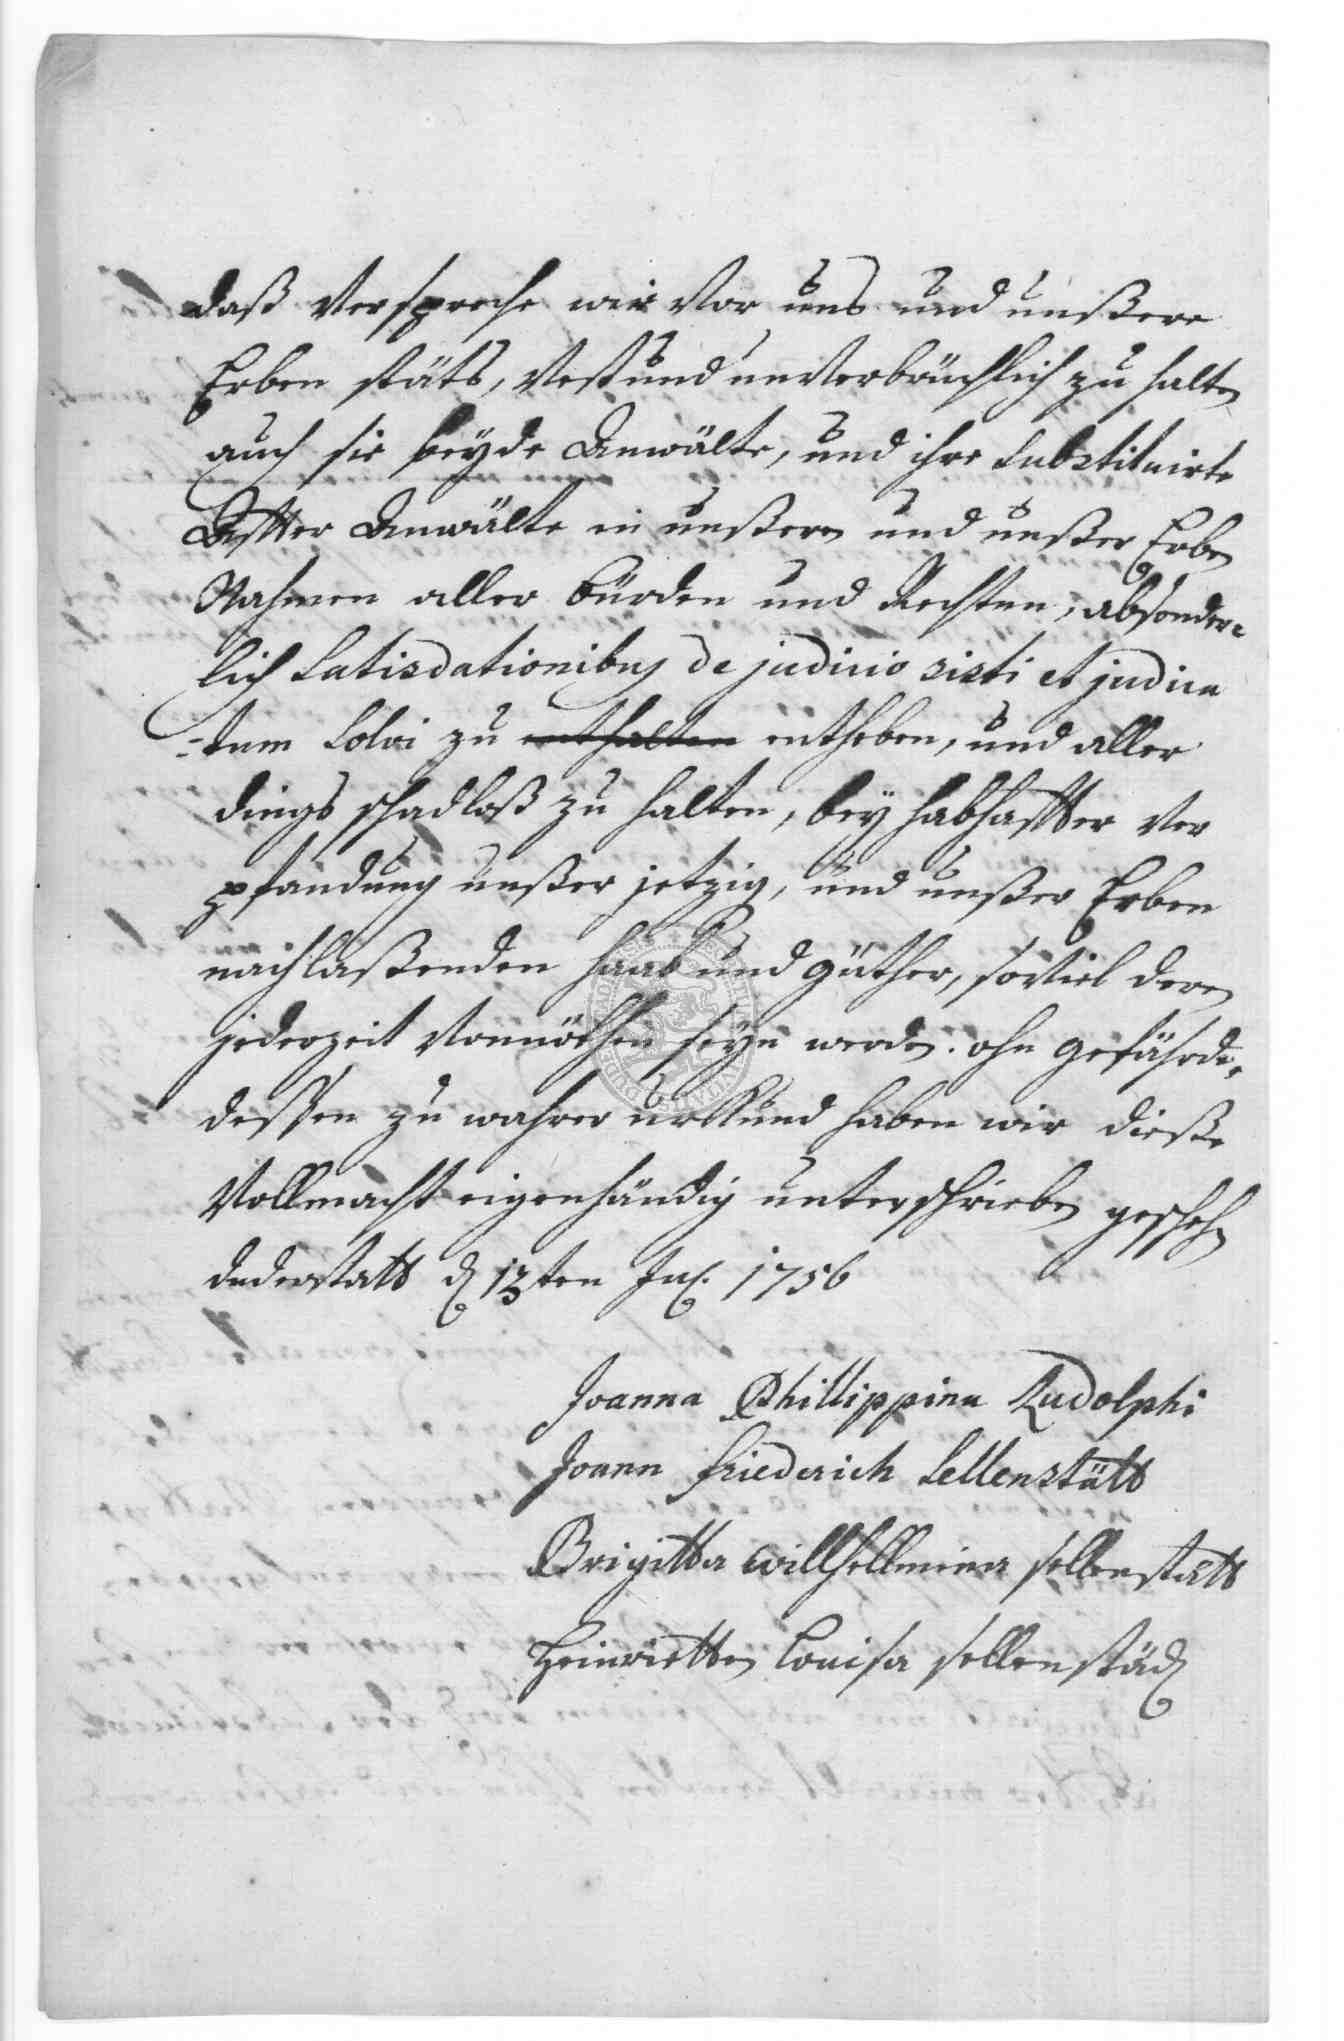 daß Verspreche wir Vor uns und unßere
Erben stäts, Vest und unVerbrüchlich zu halten
auch sie beyde Anwälte, und ihre Substituirte
Affter Anwälte in unßeren und unßer Erben
Nahmen aller bürden und Rechten, absonder=
lich Satisdationibus de judicio sisti et judica
=tum Solvi zu enthalten entheben, und aller
dings schadloß zu halten, bey habhaffter Ver
pfandung unßer jetzig, und unßer Erben
nachlaßenden Haab und güther, soviel deren
jederzeit Vonnöthen seyn werde. ohn gefährde,
dessen zu wahrer urkund haben wir dieße
Vollmacht eigenhändig unterschrieben geschehen
duderstatt d 13ten Jul. 1756
Joanna Phillippina Ludolphi
Joann friederich Sellenstätt
Brigitta willhellmina sellenstätt
Heinrietten Louisa sellenstäd